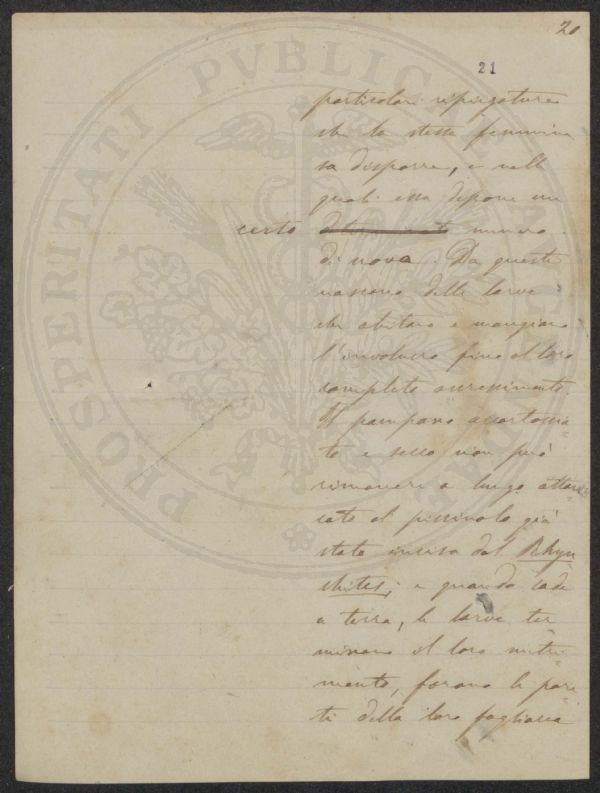 20
21
particolari ripiegature
che la stessa femmina
sa disporre, e nelle
quali essa depone un
certo numero
di nova. Da queste
nascono delle larve
che abitano e mangiano
l'involucro fino al loro
completo accrescimento.
Il pampano accartoccia
to e secco non può
rimanere a lungo attac
cato al picciuolo già
stato inciso dal Rhyn
chites; e quando cade
a terra, le larve ter
minano il loro nutri
mento, forano le pare
ti della loro fogliacea
PROSPERITATI PVBLICAE AVGENDAE